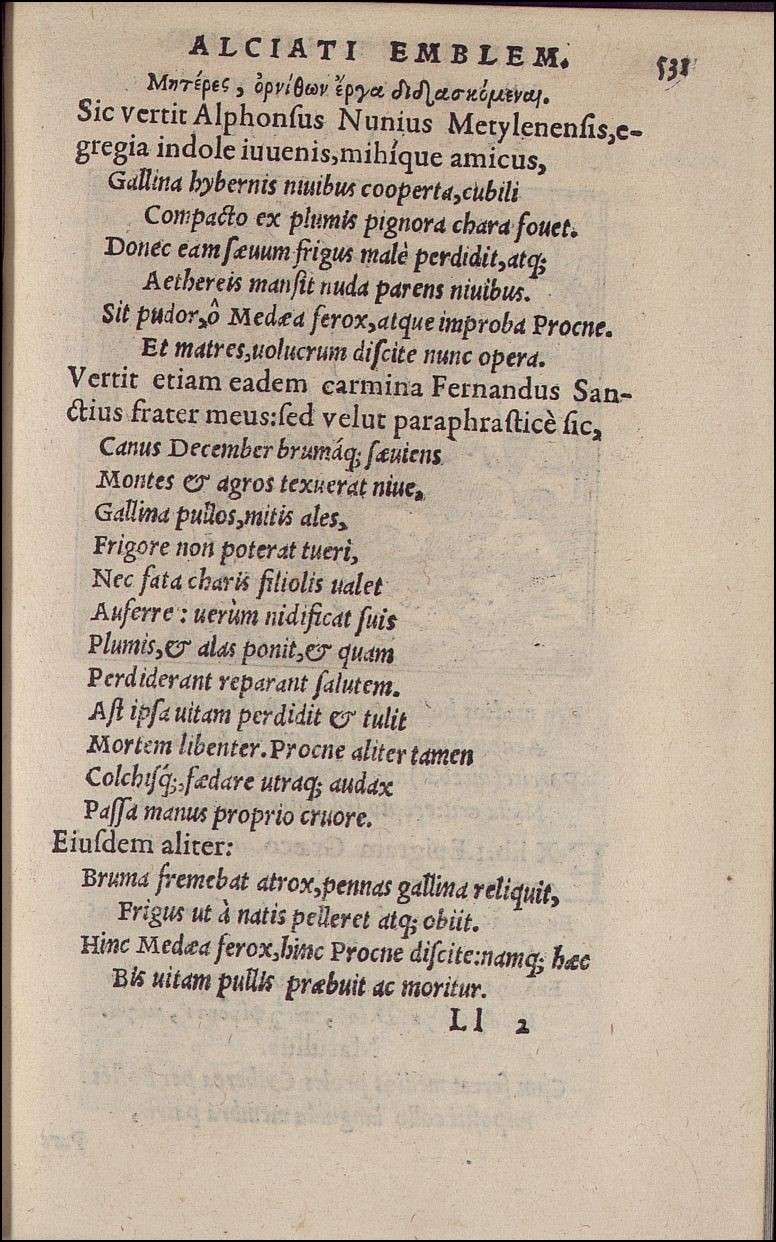 ALCIATI EMBLEM. 531
Μητέρες, ὀρνίθων ἔργα διδασκόμεναι.
Sic vertit Alphonſus Nunius Metylenenſis,e-
gregia indole iuuenis,mihíque amicus,
Gallina hybernis niuibus cooperta,cubili
Compacto ex plumis pignora chara fouet.
Donec eam ſæuum frigus malè perdidit,atq;
Aethereis manſit nuda parens niuibus.
Sit pudor,ô Medæa ferox,atque improba Procne.
Et matres,uolucrum diſcite nunc opera.
Vertit etiam eadem carmina Fernandus San-
ctius frater meus:ſed velut paraphraſticè ſic,
Canus December brumáq; ſæuiens
Montes & agros texuerat niue,
Gallina pullos,mitis ales,
Frigore non poterat tueri,
Nec fata charis filiolis ualet
Auferre : uerùm nidificat ſuis
Plumis,& alas ponit,& quam
Perdiderant reparant ſalutem.
Aſt ipſa uitam perdidit & tulit
Mortem libenter.Procne aliter tamen
Colchiſq́;,fædare utraq; audax
Paſſa manus proprio cruore.
Eiuſdem aliter:
Bruma fremebat atrox,pennas gallina reliquit,
Frigus ut à natis pelleret atq; obiit.
Hinc Medæa ferox,hinc Procne diſcite:namq; hæc
Bis uitam pullis præbuit ac moritur.
Ll 2